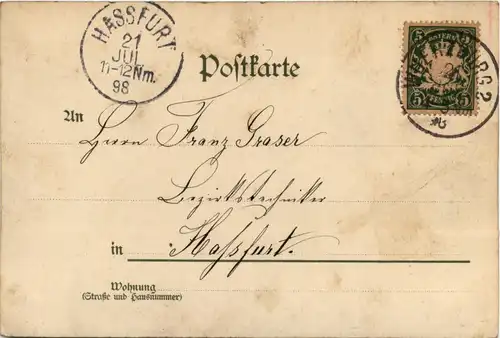 HASSFURT
21
JUL
11-12Nm.
98
Postkarte
BAYERN
5 5
WÜRZBURG 2
An
Herrn Franz Graser
Bezirkstechniker
in Hassfurt.
Wohnung
(Straße und Hausnummer)